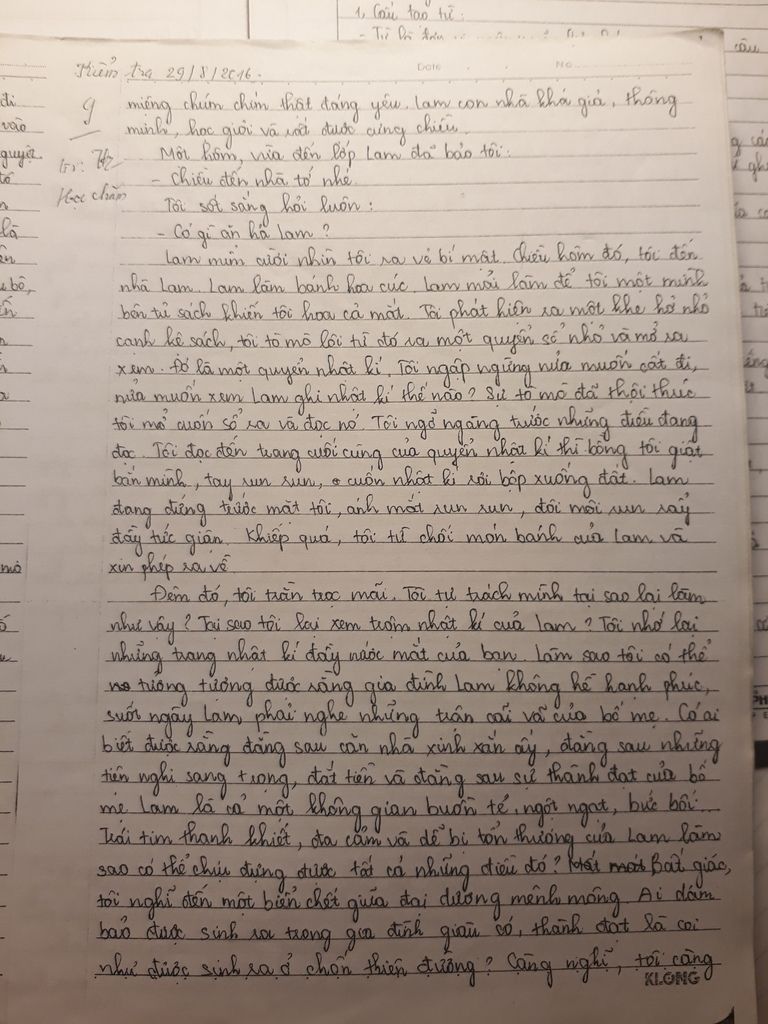 1, Cấu tạo từ:
Kiểm tra 29/8/2016.
Date No
9
miệng chúm chím thật đáng yêu. Lam con nhà khá giả, thông
minh, học giỏi và rất được cưng chiều.
Một hôm, vừa đến lớp Lam đã bảo tôi:
- Chiều đến nhà tớ nhé.
Học chăm
Tôi sốt sắng hỏi luôn:
- Có gì ăn hả Lam?
Lam mỉm cười nhìn tôi ra vẻ bí mật. Chiều hôm đó, tôi đến
nhà Lam. Lam làm bánh hoa cúc. Lam mải làm để tôi một mình
bên tủ sách khiến tôi hoa cả mắt. Tôi phát hiện ra một khe hở nhỏ
cạnh kệ sách, tôi tò mò lôi từ đó ra một quyển sổ nhỏ và mở ra
xem. Đó là một quyển nhật kí. Tôi ngập ngừng nửa muốn cất đi,
nửa muốn xem Lam ghi nhật kí thế nào? Sự tò mò đã thôi thúc
tôi mở cuốn sổ ra và đọc nó. Tôi ngỡ ngàng trước những điều đang
đọc. Tôi đọc đến trang cuối cùng của quyển nhật kí thì bỗng tôi giật
bắn mình, tay run run, cuốn nhật kí rơi bộp xuống đất. Lam
đang đứng trước mặt tôi, ánh mắt run run, đôi môi run rẩy
đầy tức giận. Khiếp quá, tôi từ chối món bánh của Lam và
xin phép ra về.
Đêm đó, tôi trằn trọc mãi. Tôi tự trách mình tại sao lại làm
như vậy? Tại sao tôi lại xem trộm nhật kí của Lam? Tôi nhớ lại
những trang nhật kí đầy nước mắt của bạn. Làm sao tôi có thể
tưởng tượng được rằng gia đình Lam không hề hạnh phúc,
suốt ngày Lam phải nghe những trận cãi vã của bố mẹ. Có ai
biết được rằng đằng sau căn nhà xinh xắn ấy, đằng sau những
tiện nghi sang trọng, đắt tiền và đằng sau sự thành đạt của bố
mẹ Lam là cả một không gian buồn tẻ, ngột ngạt, bức bối.
Trái tim thanh khiết, đa cảm và dễ bị tổn thương của Lam làm
sao có thể chịu đựng được tất cả những điều đó? Bất giác,
tôi nghĩ đến một biển chết giữa đại dương mênh mông. Ai dám
bảo được sinh ra trong gia đình giàu có, thành đạt là coi
như được sinh ra ở chốn thiên đường? Càng nghĩ, tôi càng
KLONG